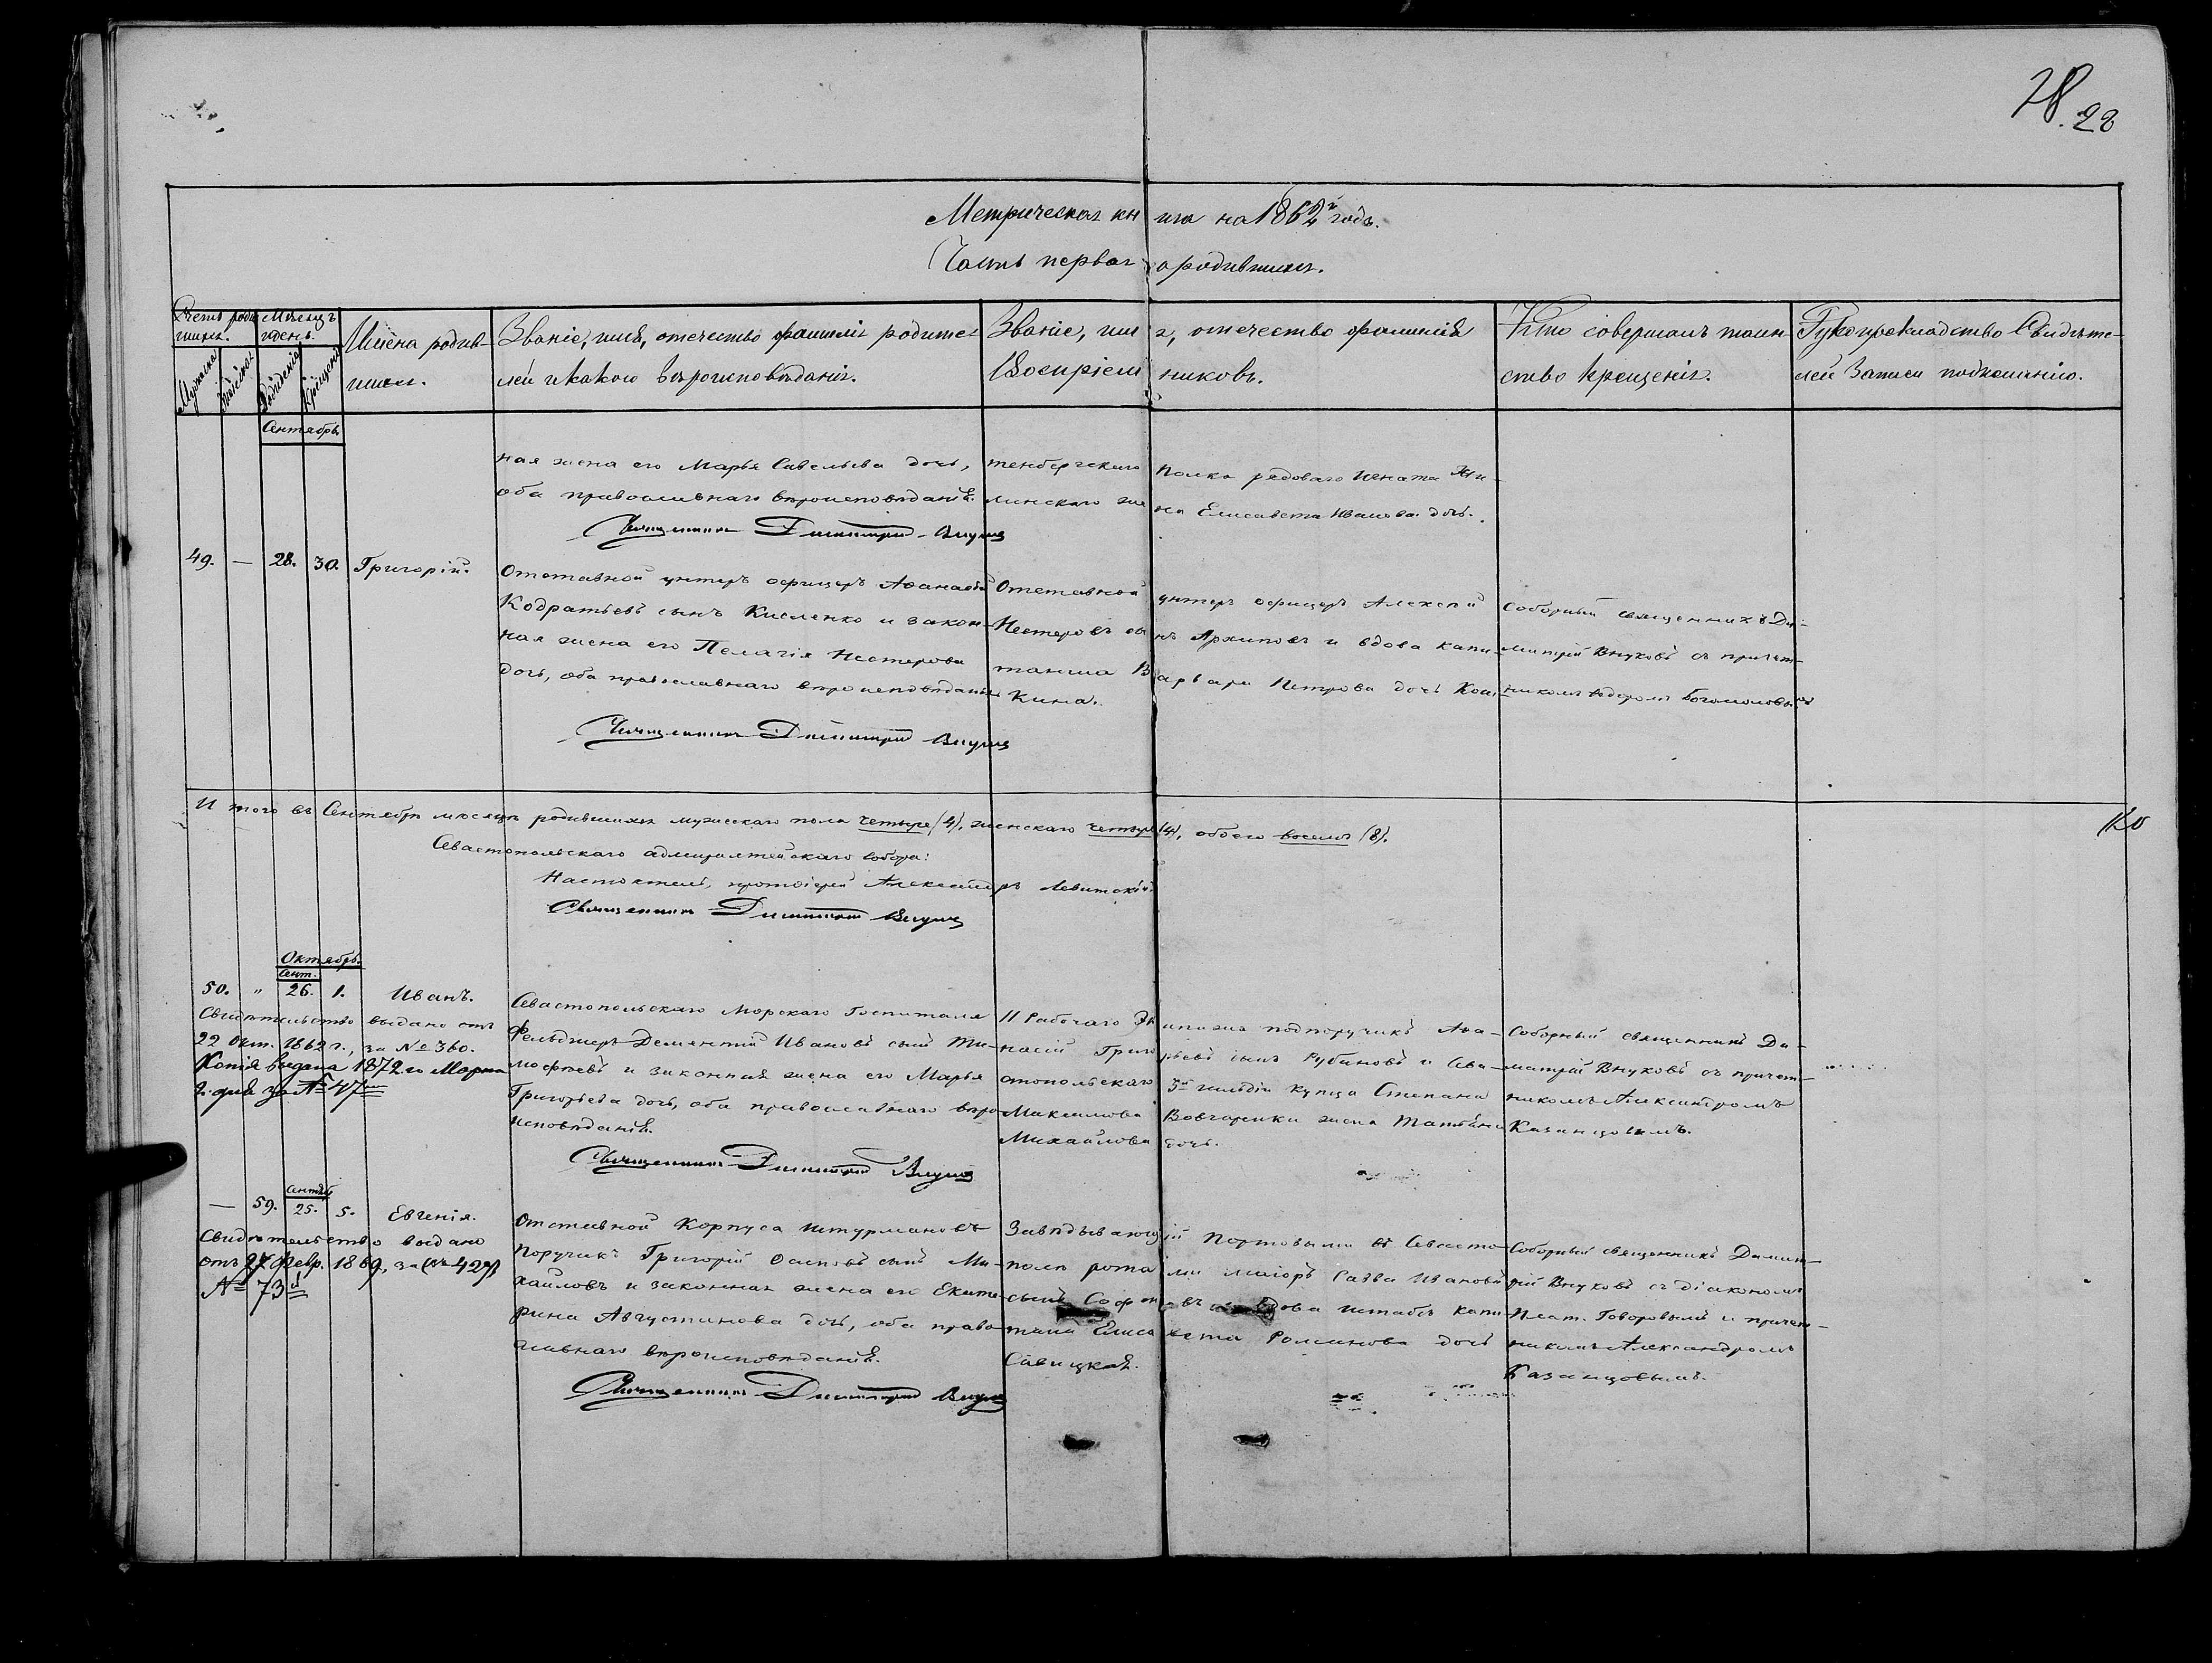 28
Метрическая книга на 1862й годъ.
Часть первая о родившихся.
Счетъ родив-
шихся.
Мужеска
Женска
Мѣсяцъ
и день.
Рожденія
Крещенія
Имена родив-
шихся.
Званіе, имя, отечество фамилія родите-
лей и какого вѣроисповѣданія.
Званіе, имя, отечество фамилія
Воспріемниковъ.
Кто совершалъ таин-
ство Крещенія.
Рукоприкладство Свидѣте-
лей Записи по желанію.
Сентябрь
ная жена его Марья Савельева дочь,
оба православнаго вѣроисповѣданія.
Священникъ Димитрій Внуковъ
тенбергскаго Полка рядоваго Игната
линскаго жена Елисавета Иванова дочь.
49. — 28. 30. Григорій.
Отставной унтеръ офицеръ Аѳанасій
Кодратьевъ сынъ Кисленко и закон-
ная жена его Пелагія Нестерова
дочь, оба православнаго вѣроисповѣданія
Священникъ Димитрій Внуковъ
Отставной унтеръ офицеръ Алексѣй
Нестеровъ сынъ Архиповъ и вдова капи-
танша Варвара Петрова дочь
кина.
Соборный священникъ Ди-
митрій Внуковъ съ причет-
никомъ Ѳедоромъ Богомоловымъ
И того въ Сентябрѣ мѣсяцѣ родившихся мужескаго пола четыре (4), женскаго четыре (4), обоего восемь (8).
Севастопольскаго адмиралтейскаго собора:
Настоятель, протоіерей Александръ Левитскій.
Священникъ Димитрій Внуковъ
Октябрь.
Сент.
50. " 26. 1. Иванъ.
Свидѣтельство выдано отъ
22 Окт. 1862 г., за № 360.
Копія выдана 1872 го Марта
дня за № 47
Севастопольскаго Морскаго Госпиталя
Фельдшеръ Дементій Ивановъ сынъ Ти-
мофѣевъ и законная жена его Марья
Григорьева дочь, оба православнаго вѣро-
исповѣданія.
Священникъ Димитрій Внуковъ
11 Рабочаго Экипажа подпоручикъ Аѳа-
насій Григорьевъ сынъ Рубановъ и Сева-
стопольскаго 3й гильдіи купца Степана
Максимова Вовчаренки жена Татьяна
Михайлова дочь.
Соборный священникъ Ди-
митрій Внуковъ съ причет-
никомъ Александромъ
Казанцовымъ.
Сентяб.
— 59. 25. 5. Евгенія.
Свидѣтельство выдано
отъ 27 Февр. 1869, за (№ 429)
№ 73й
Отставной Корпуса штурмановъ
Поручикъ Григорій Осиповъ сынъ Ми-
хайловъ и законная жена его Екате-
рина Августинова дочь, оба право-
славнаго вѣроисповѣданія.
Священникъ Димитрій Внуковъ
Завѣдывающій Портовыми въ Севасто-
полѣ ротами маіоръ Савва Ивановъ
сынъ Софоновъ и вдова штабсъ капи-
тана Елисавета Романова дочь
Савицкая.
Соборный священникъ Димит-
рій Внуковъ съ діакономъ
Плат. Говоровымъ и причет-
никомъ Александромъ
Казанцовымъ.